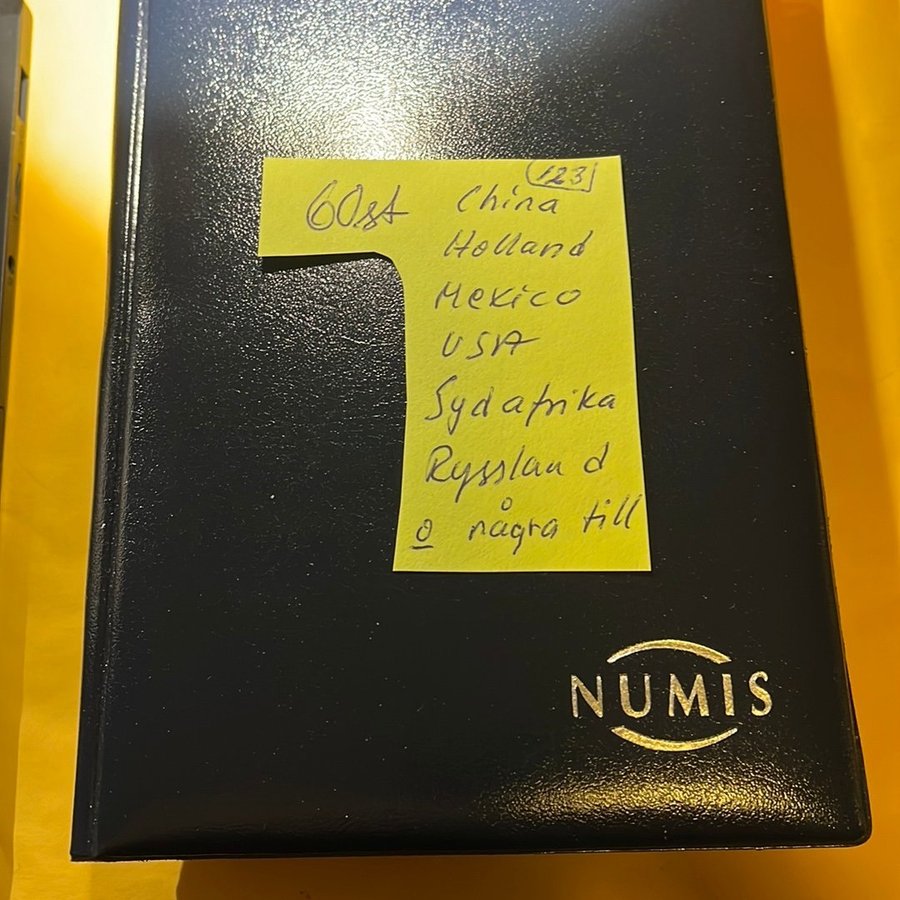 123
60st China
Holland
Mexico
USA
Sydafrika
Ryssland
o några till
NUMIS